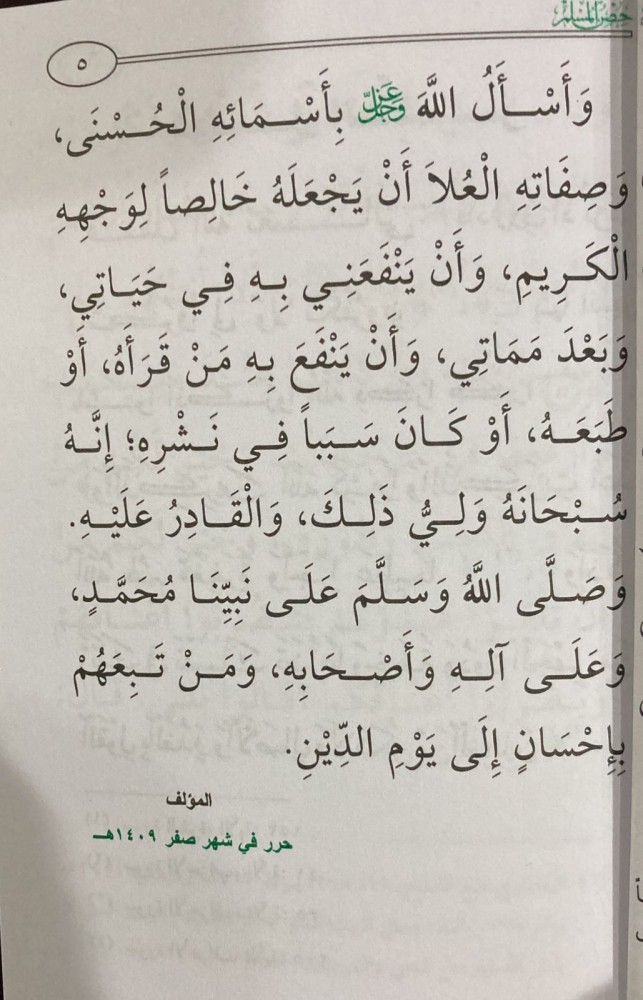 حصن المسلم
٥
وَأَسْـأَلُ اللَّهَ عَزَّ وَجَلَّ بِأَسْـمَائِهِ الْحُـسْنَى،
وَصِفَاتِهِ الْعُلاَ أَنْ يَجْعَلَهُ خَالِصاً لِوَجْهِهِ
الْكَـرِيمِ، وَأَنْ يَنْفَعَنِـي بِـهِ فِـي حَيَـاتِي،
وَبَعْدَ مَمَاتِي، وَأَنْ يَنْفَعَ بِهِ مَنْ قَرَأَهُ، أَوْ
طَبَعَـهُ، أَوْ كَـانَ سَـبَباً فِـي نَـشْرِهِ؛ إِنَّـهُ
سُـبْحَانَهُ وَلِـيُّ ذَلِـكَ، وَالْقَـادِرُ عَلَيْـهِ.
وَصَـلَّى اللَّهُ وَسَـلَّمَ عَلَـى نَبِيِّنَـا مُحَمَّـدٍ،
وَعَلَـى آلِـهِ وَأَصْـحَابِهِ، وَمَـنْ تَـبِعَهُمْ
بِإِحْسَانٍ إِلَى يَوْمِ الدِّيْنِ.
المؤلف
حرر في شهر صفر ١٤٠٩هـ